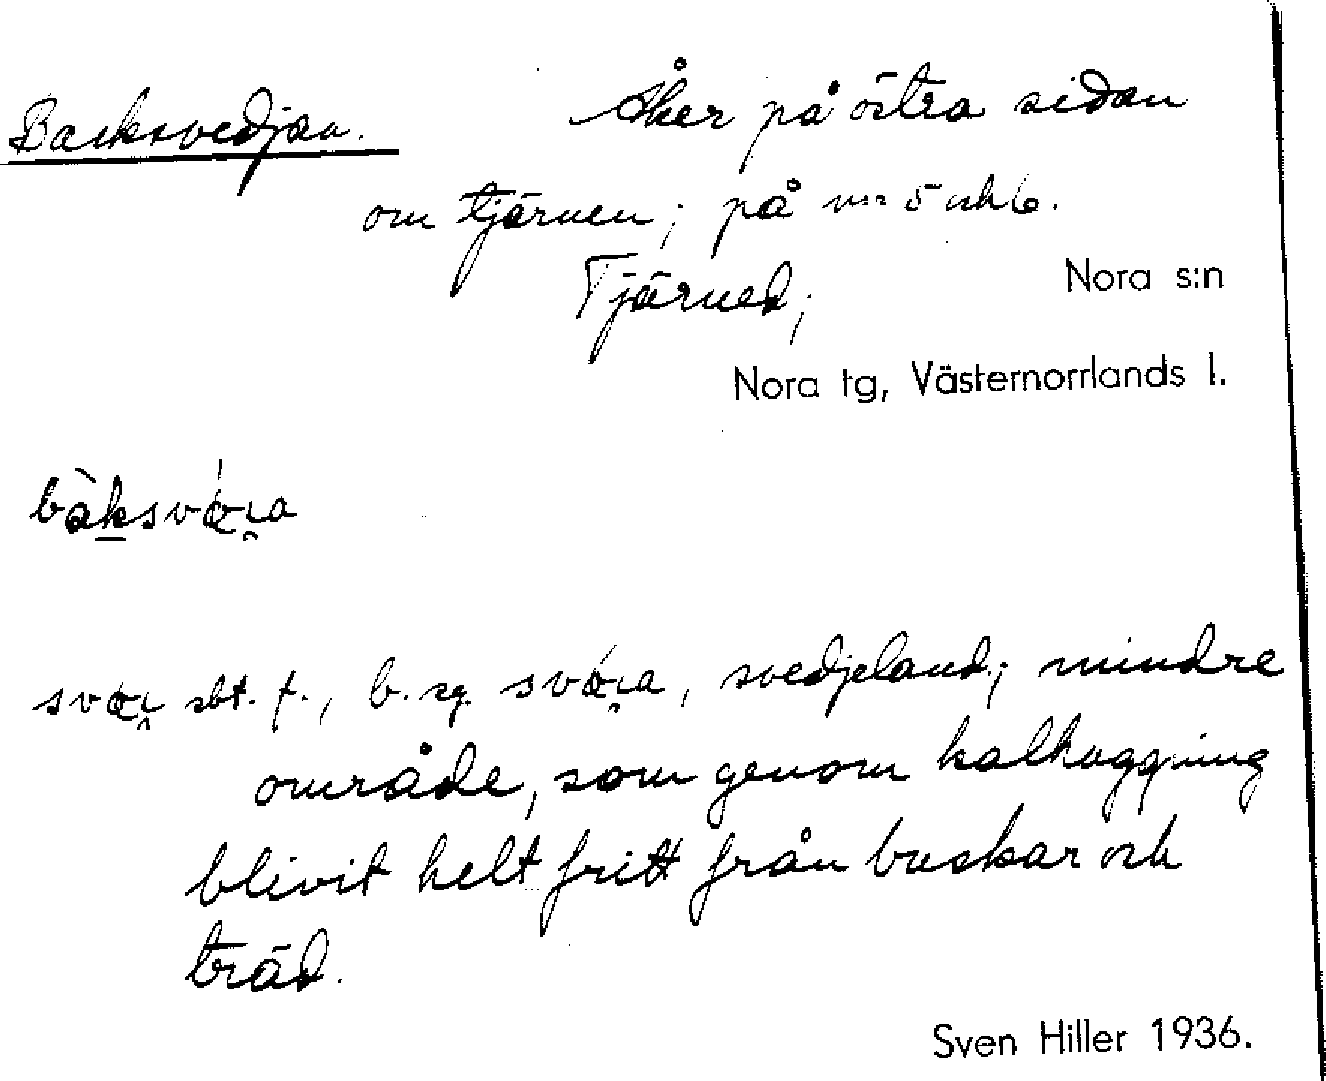 Backsvedjan. Åker på östra sidan
om tjärnen; på nr 5 och 6.
Tjärned; Nora s:n
Nora tg, Västernorrlands l.
bàksvǿɹa
svøɹ sbt. f., b. sg. svǿɹa, svedjeland; mindre
område, som genom kalhuggning
blivit helt fritt från buskar och
träd.
Sven Hiller 1936.